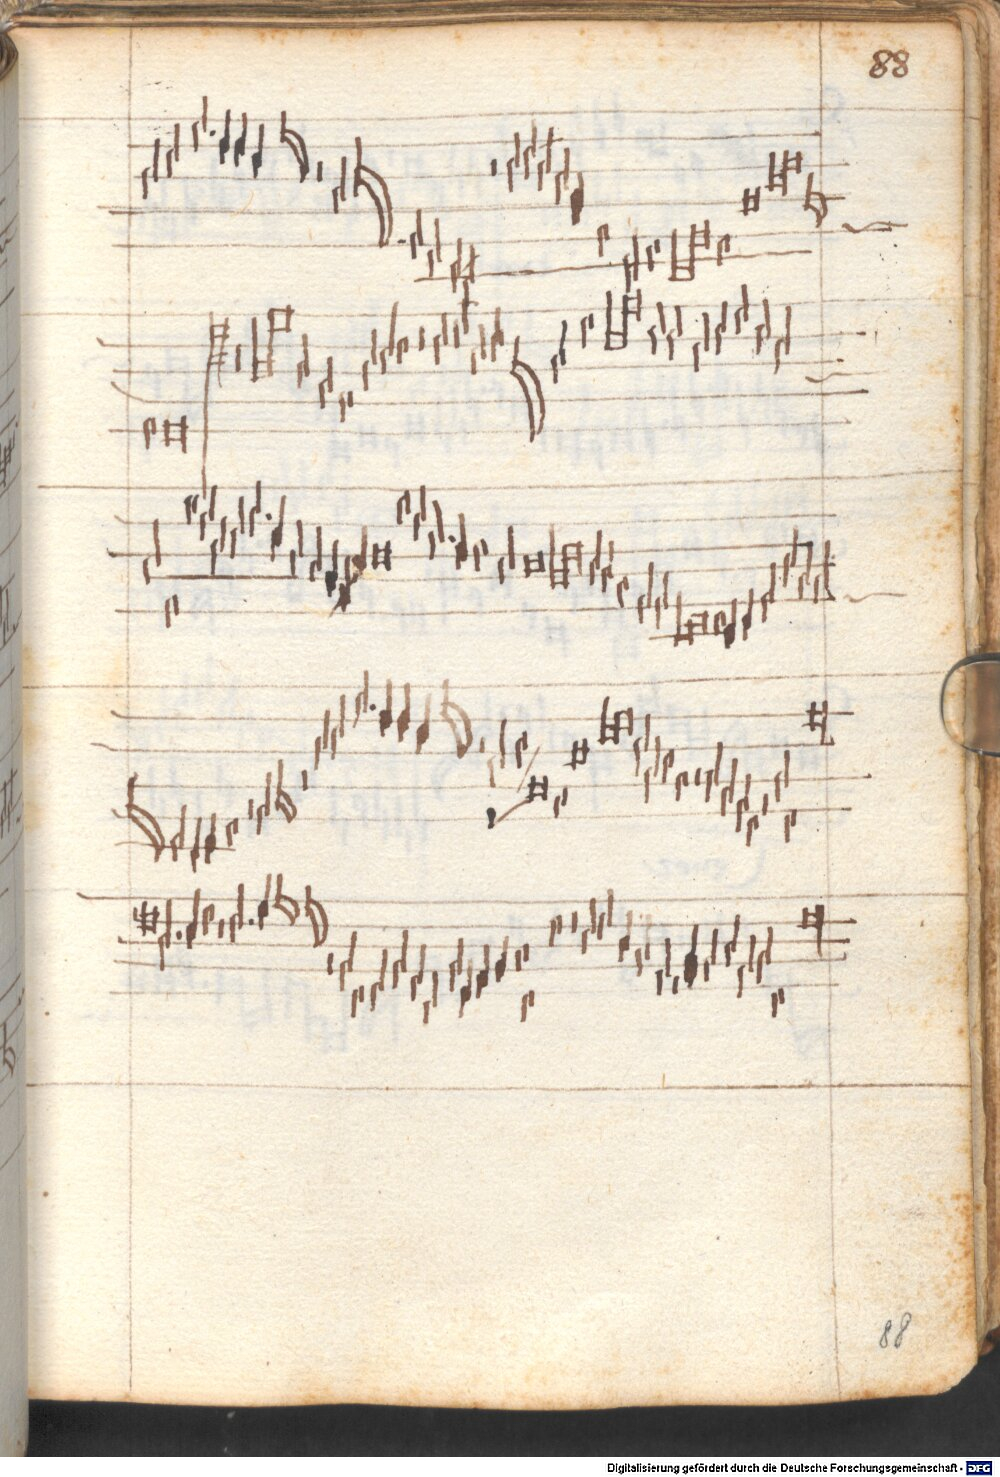 88
88
Digitalisierung gefördert durch die Deutsche Forschungsgemeinschaft - DFG